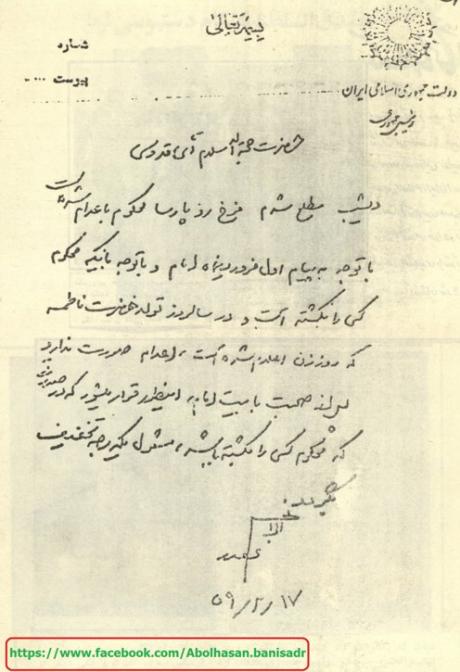 بسمه‌تعالی
شماره
پیوست
دولت جمهوری اسلامی ایران
رئیس جمهوری
حضرت حجة الاسلام آقای قدوسی
دیشب مطلع شدم فرخ رو پارسا محکوم باعدام شده است
با توجه به پیام اول فروردین ماه امام و با توجه باینکه محکوم
کسی را نکشته است و در سالروز تولد حضرت فاطمه
که روز زن اعلام شده است، اعدام صورت ندارد
بعد از صحبت با بیت امام اینطور قرار میشود که در صورتی
که محکوم کسی را نکشته باشد، مشمول یکدرجه تخفیف
۵۹/۲/۱۷
https://www.facebook.com/Abolhasan.banisadr